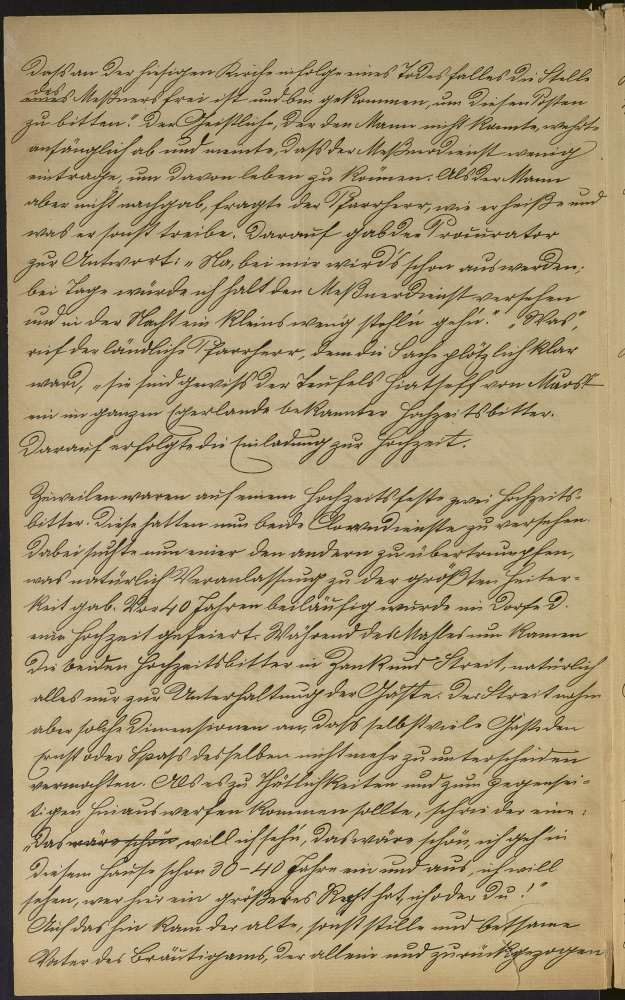 dass an der hiesigen Kirche infolge eines Todesfalles die Stelle
eines des Meßners frei ist und bin gekommen, um diesen Posten
zu bitten." Der Geistliche, der den Mann nicht kannte, wehrte
anfänglich ab und meinte, dass der Meßnerdienst wenig
eintrage, um davon leben zu können. Als der Mann
aber nicht nachgab, fragte der Pfarrherr, wie er heiße und
was er sonst treibe. Darauf gab der Procurator
zur Antwort: "Na, bei mir wird's schon aus werden;
bei Tage würde ich halt den Meßnerdienst versehen
und in der Nacht ein kleins wenig stehl'n geh'n." "Was",
rief der ländliche Pfarrherr, dem die Sache plötzlich klar
ward, "sie sind gewiss der Teufels von
ein im ganzen Egerlande bekannter Hochzeitsbitter.
Darauf erfolgte die Einladung zur Hochzeit.
Zuweilen waren auf einem Hochzeitsfeste zwei Hochzeits-
bitter. Diese hatten nun beide Clowndienste zu versehen.
Dabei suchte nun einer den andern zu übertrumpfen,
was natürlich Veranlassung zu der größten Heiter-
keit gab. Vor 40 Jahren beiläufig wurde im Dorfe D.
eine Hochzeit gefeiert. Während des Mahles nun kamen
die beiden Hochzeitsbitter in Zank und Streit, natürlich
alles nur zur Unterhaltung der Gäste. Der Streit nahm
aber solche Dimensionen an, dass selbst viele Gäste den
Ernst oder Spass desselben nicht mehr zu unterscheiden
vermochten. Als es zu Thätlichkeiten und zum gegensei-
tigen Hinauswerfen kommen sollte, schrie der eine:
"Das wäre schön will ich seh'n, das wäre schön, ich geh' in
diesem Hause schon 30-40 Jahre ein und aus, ich will
sehen, wer hier ein größeres Recht hat, ich oder Du!"
Auf das hin kam der alte, sonst stille und betsame
Vater des Bräutigams, der allein und zurückgezogen